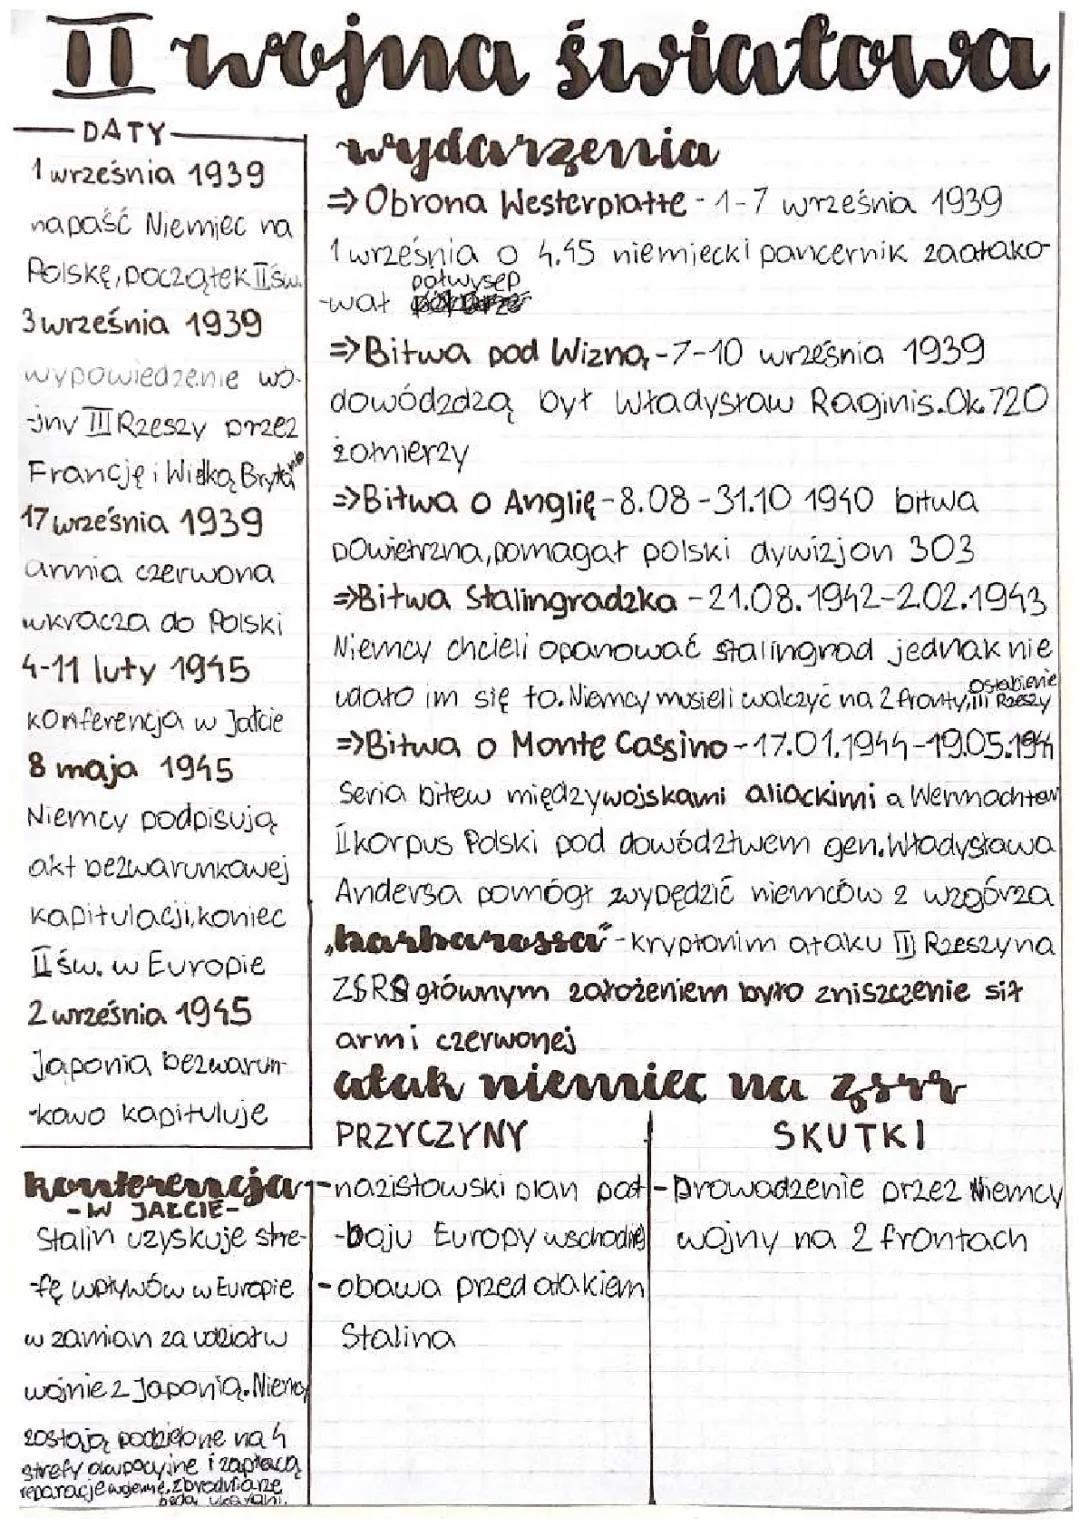 II wojna światowa
DATY
1 września 1939
napaść Niemiec na
Polskę, początek IIśw.
3 września 1939
wypowiedzenie wo-
-jny III Rzeszy przez
Francję i Wielką Brytanię
17 września 1939
armia czerwona
wkracza do Polski
4-11 luty 1945
konferencja w Jałcie
8 maja 1945
Niemcy podpisują
akt bezwarunkowej
kapitulacji, koniec
II św. w Europie
2 września 1945
Japonia bezwarun-
-kowo kapituluje
konferencja
-W JAŁCIE-
Stalin uzyskuje stre-
-fę wpływów w Europie
w zamian za udział w
wojnie z Japonią. Niemcy
zostają podzielone na 4
strefy okupacyjne i zapłacą
reparacje wojenne, zbrodniarze
będą ukarani.
wydarzenia
⇒ Obrona Westerplatte - 1-7 września 1939
1 września o 4.45 niemiecki pancernik zaatako-
-wał półwysep
⇒ Bitwa pod Wizną - 7-10 września 1939
dowódzdzą był Władysław Raginis. Ok. 720
żołnierzy
⇒ Bitwa o Anglię - 8.08 - 31.10 1940 bitwa
powietrzna, pomagał polski dywizjon 303
⇒ Bitwa Stalingradzka - 21.08.1942-2.02.1943
Niemcy chcieli opanować Stalingrad jednak nie
udało im się to. Niemcy musieli walczyć na 2 fronty, osłabienie III Rzeszy
⇒ Bitwa o Monte Cassino - 17.01.1944-19.05.1944
Seria bitew między wojskami aliackimi a Wermachtem
II korpus Polski pod dowództwem gen. Władysława
Andersa pomógł wypędzić niemców z wzgórza
„barbarossa" - kryptonim ataku III Rzeszy na
ZSRR głównym założeniem było zniszczenie sił
armi czerwonej
atak niemiec na zsrr
PRZYCZYNY
-nazistowski plan pod-
-boju Europy wschodniej
-obawa przed atakiem
Stalina
SKUTKI
-Prowadzenie przez Niemcy
wojny na 2 frontach